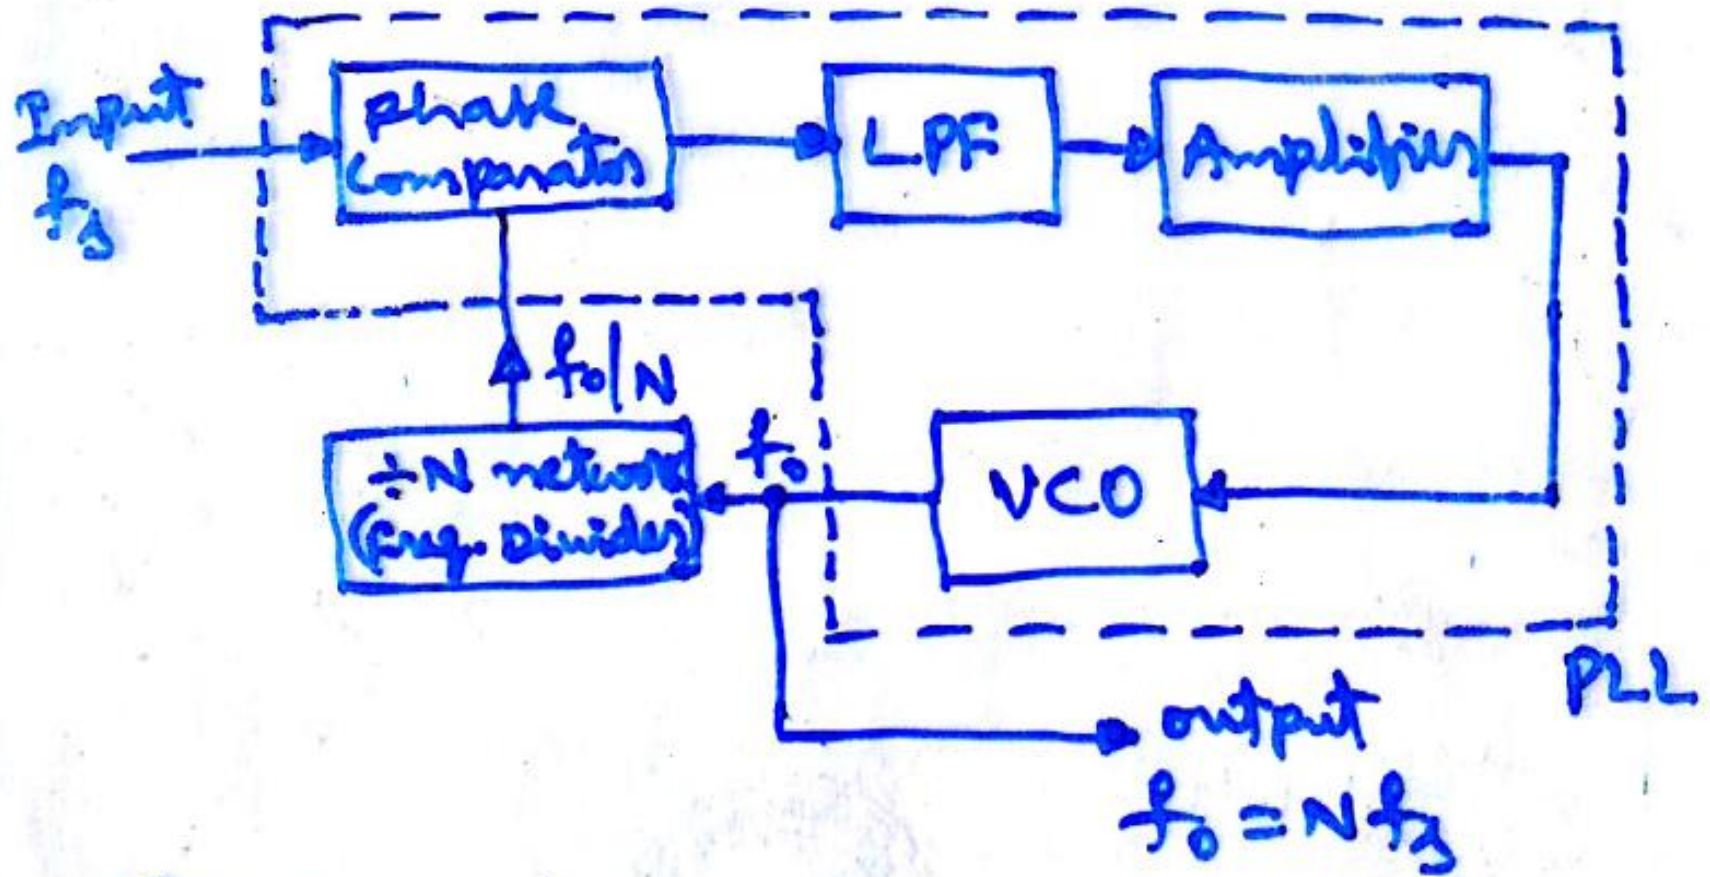 Input
fs
Phase
Comparator
LPF
Amplifier
fo/N
÷N network
(Freq. Divider)
fo
VCO
PLL
output
fo = N fs